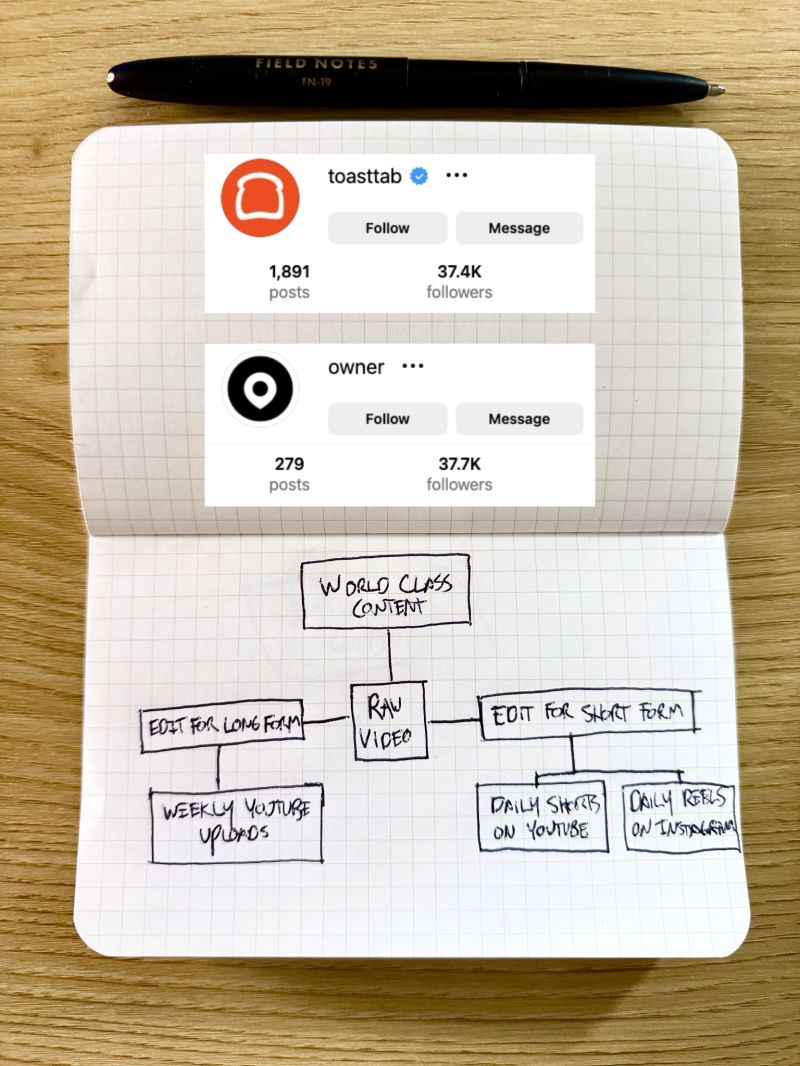 FIELD NOTES
FN-19
toasttab
Follow
Message
1,891
37.4K
posts
followers
owner
Follow
Message
279
37.7K
posts
followers
WORLD CLASS
CONTENT
RAW
VIDEO
EDIT FOR LONG FORM
EDIT FOR SHORT FORM
WEEKLY YOUTUBE
UPLOADS
DAILY SHORTS
ON YOUTUBE
DAILY REELS
ON INSTAGRAM